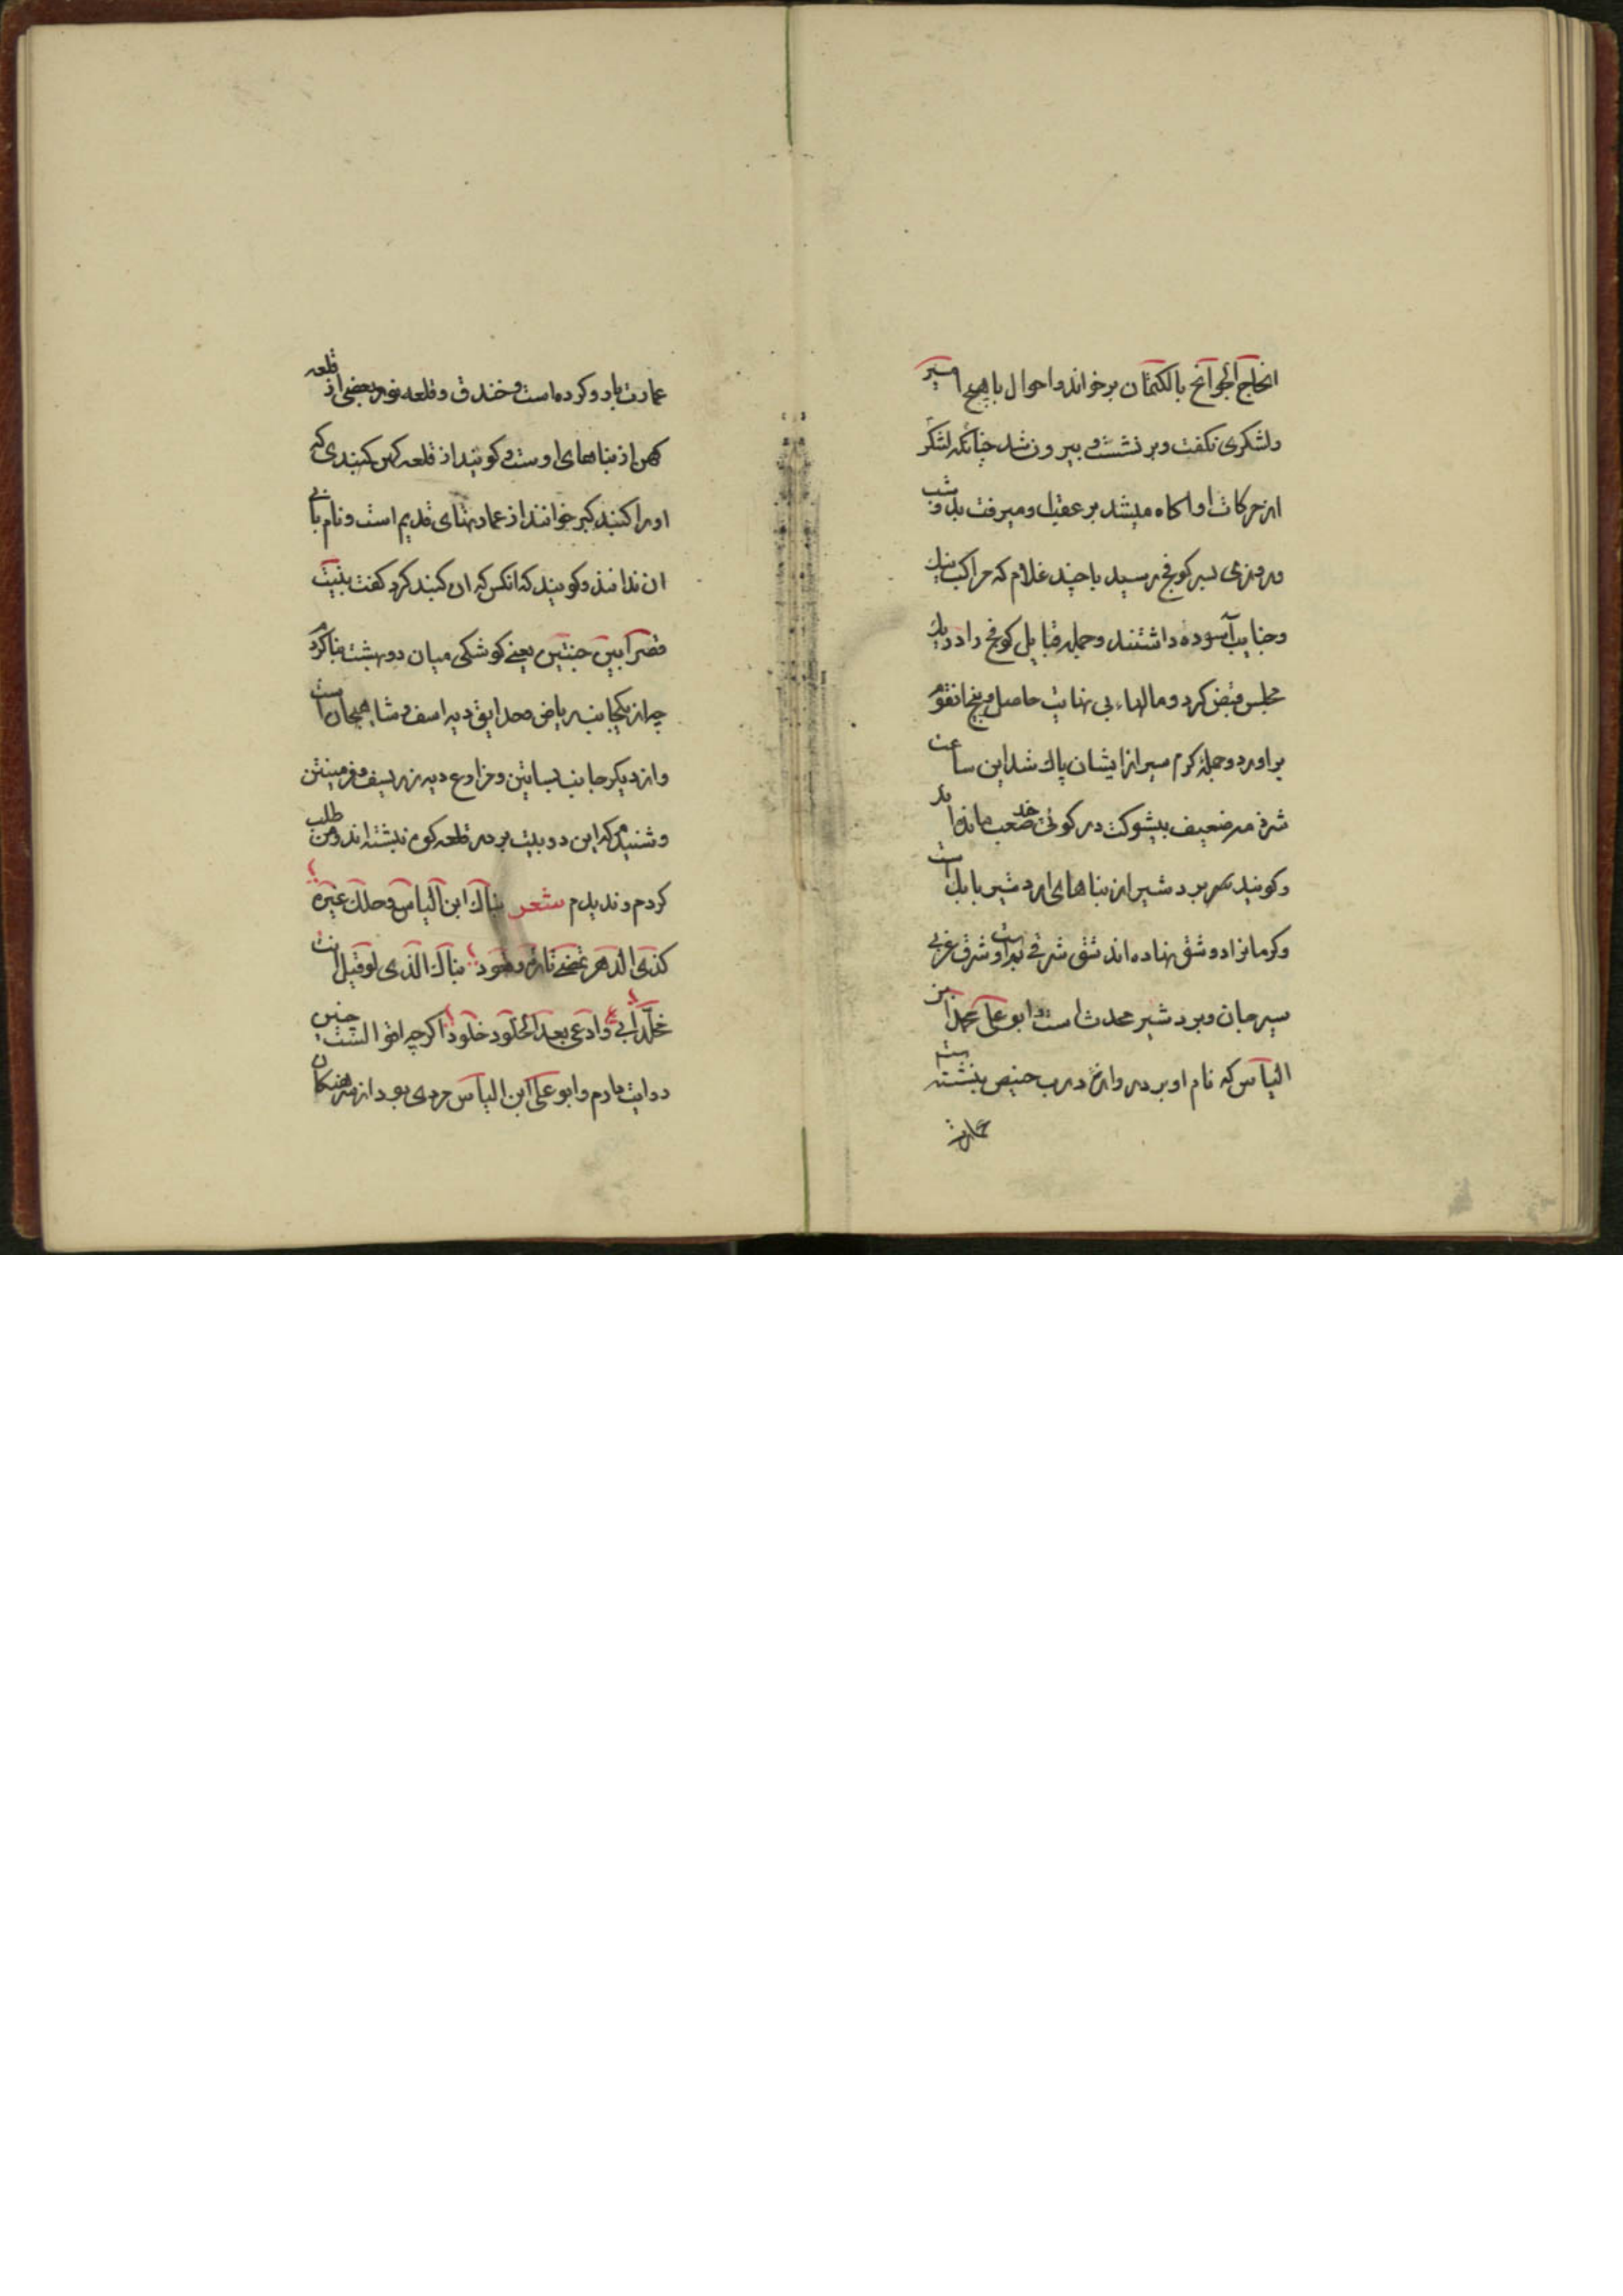 انجاح الحوائج بالکتمان بر خواند و احوال با هیچ امیر
و لشکری نکفت و بر نشست و بیرون شد چنانکه لشکر
از حرکات او اکاه میشد بر عقب او میرفت بدو شب
و روزی بسر کوفج رسید با چند غلام که مراکب نیک
و جنایب آسوده داشتند و جمله قبایل کوفج را در یک
مجلس قبض کرد و مالهاء بی نهایت حاصل و بیخ انقوم
براورد و جمله کرم سیر از ایشان پاک شد این ساعت
شرذمه ضعیف بیشوکت در کوئی چند صعب مانده اند
و کویند شهر بردشیر از بناهای اردشیر بابک است
و کرمانرا دو شق نهاده اند شق شرقی بم است و شرق غربی
سیرجان و بردشیر محدث است و ابو علی محمد ابن
الیاس که نام او بر دروازه درب خبیص بنشته است
عمارت
عمارت بارو کرده است و خندق و قلعه نو و بعضی از قلعه
کهن از بناهای اوست و کویند از قلعه کهن کنبدی که
او را کنبد کبر خوانند از عمارتهای قدیم است و نام بانی
ان ندانند و کویند که انکس که ان کنبد کرد کفت بنیت
قصرا بین جنتین یعنی کوشکی میان دو بهشت بنا کردم
چه از یکجانب ریاض و حدایق دیه اسف و شاهیجان است
و از دیکر جانب بساتین و مزارع دیه زریسف و فرمیتن
و شنیدم که این دو بیت بر در قلعه کوه نبشته اند و من طلب
کردم و ندیدم شعر بناك ابن الیاس وحلك غیره
کذی الدهر تمضی تارة وتعود بناك الذی لو قیل انت
مخلد ابی وادعی بعد الخلود خلود اکرچه افواه السنت چنین
روایت دارم و ابو علی ابن الیاس مردی بود از سرهنکان